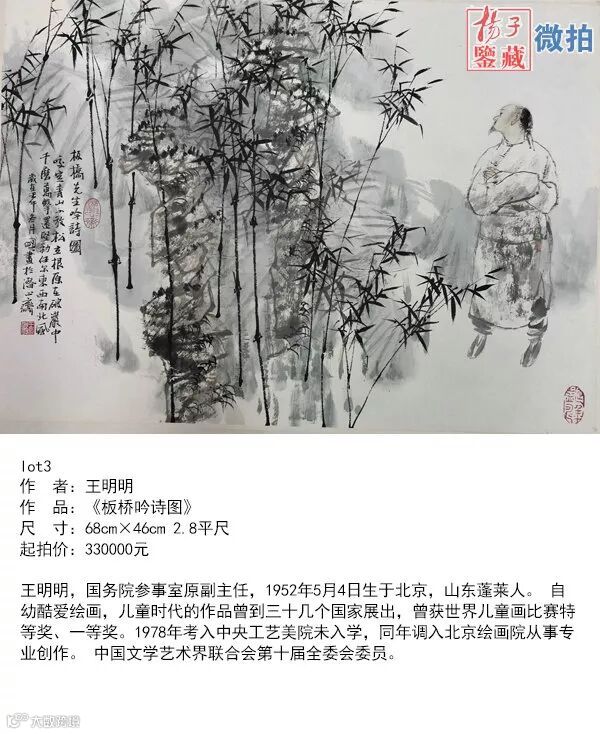 子
鑒藏 微拍
板橋先生吟詩圖
咬定青山不放松立根原在破巖中
千磨萬擊還堅勁任尔東西南北風
lot3
作 者：王明明
作 品：《板桥吟诗图》
尺 寸：68cm×46cm 2.8平尺
起拍价：330000元
王明明，国务院参事室原副主任，1952年5月4日生于北京，山东蓬莱人。 自
幼酷爱绘画，儿童时代的作品曾到三十几个国家展出，曾获世界儿童画比赛特
等奖、一等奖。1978年考入中央工艺美院未入学，同年调入北京绘画院从事专
业创作。 中国文学艺术界联合会第十届全委会委员。
大数跨境